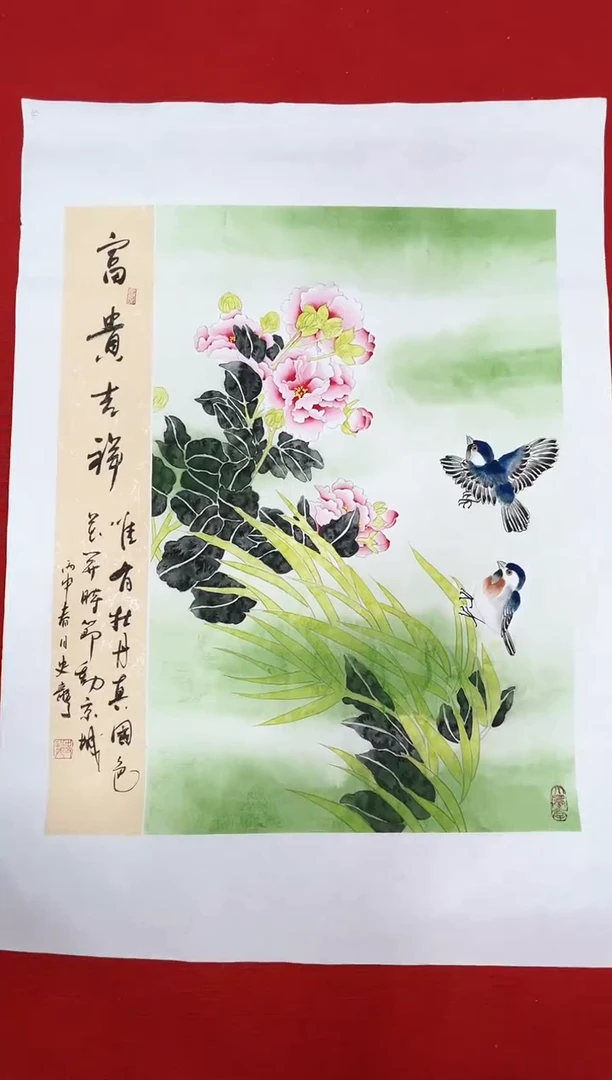 富貴吉祥
唯有牡丹真國色
花開時節動京城
丙申春日史